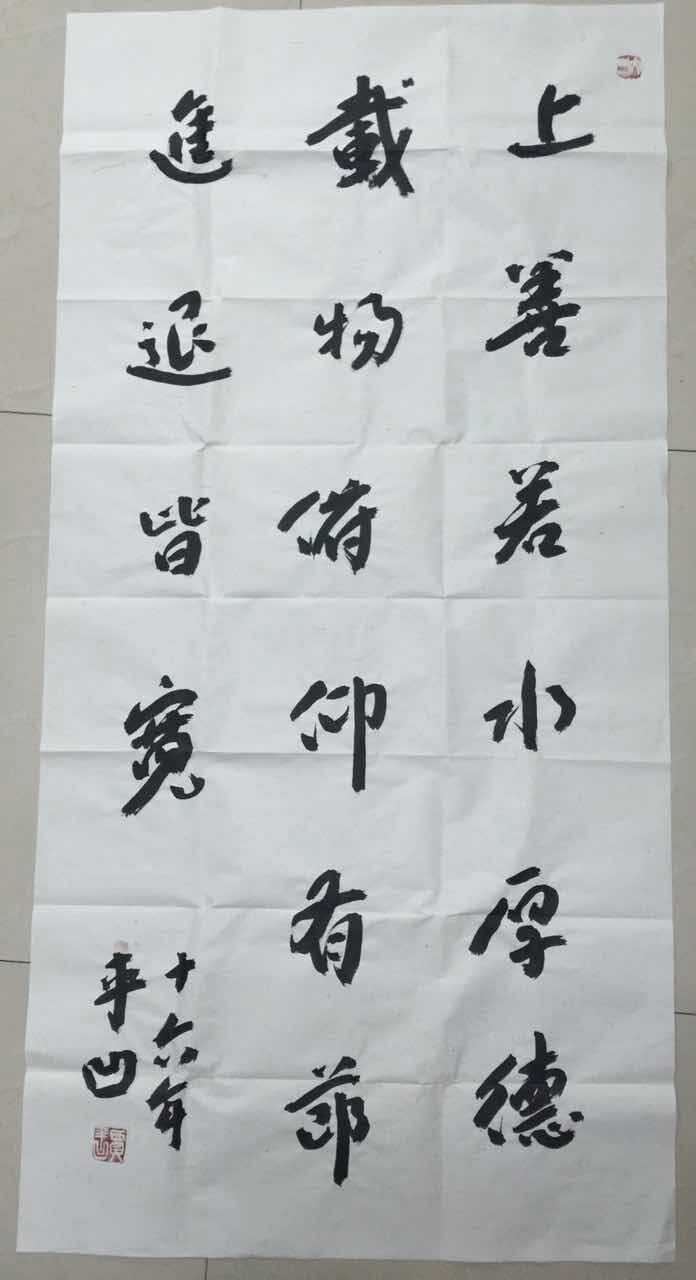 上善若水厚德
載物俯仰有節
進退皆寬
十六年
平凹